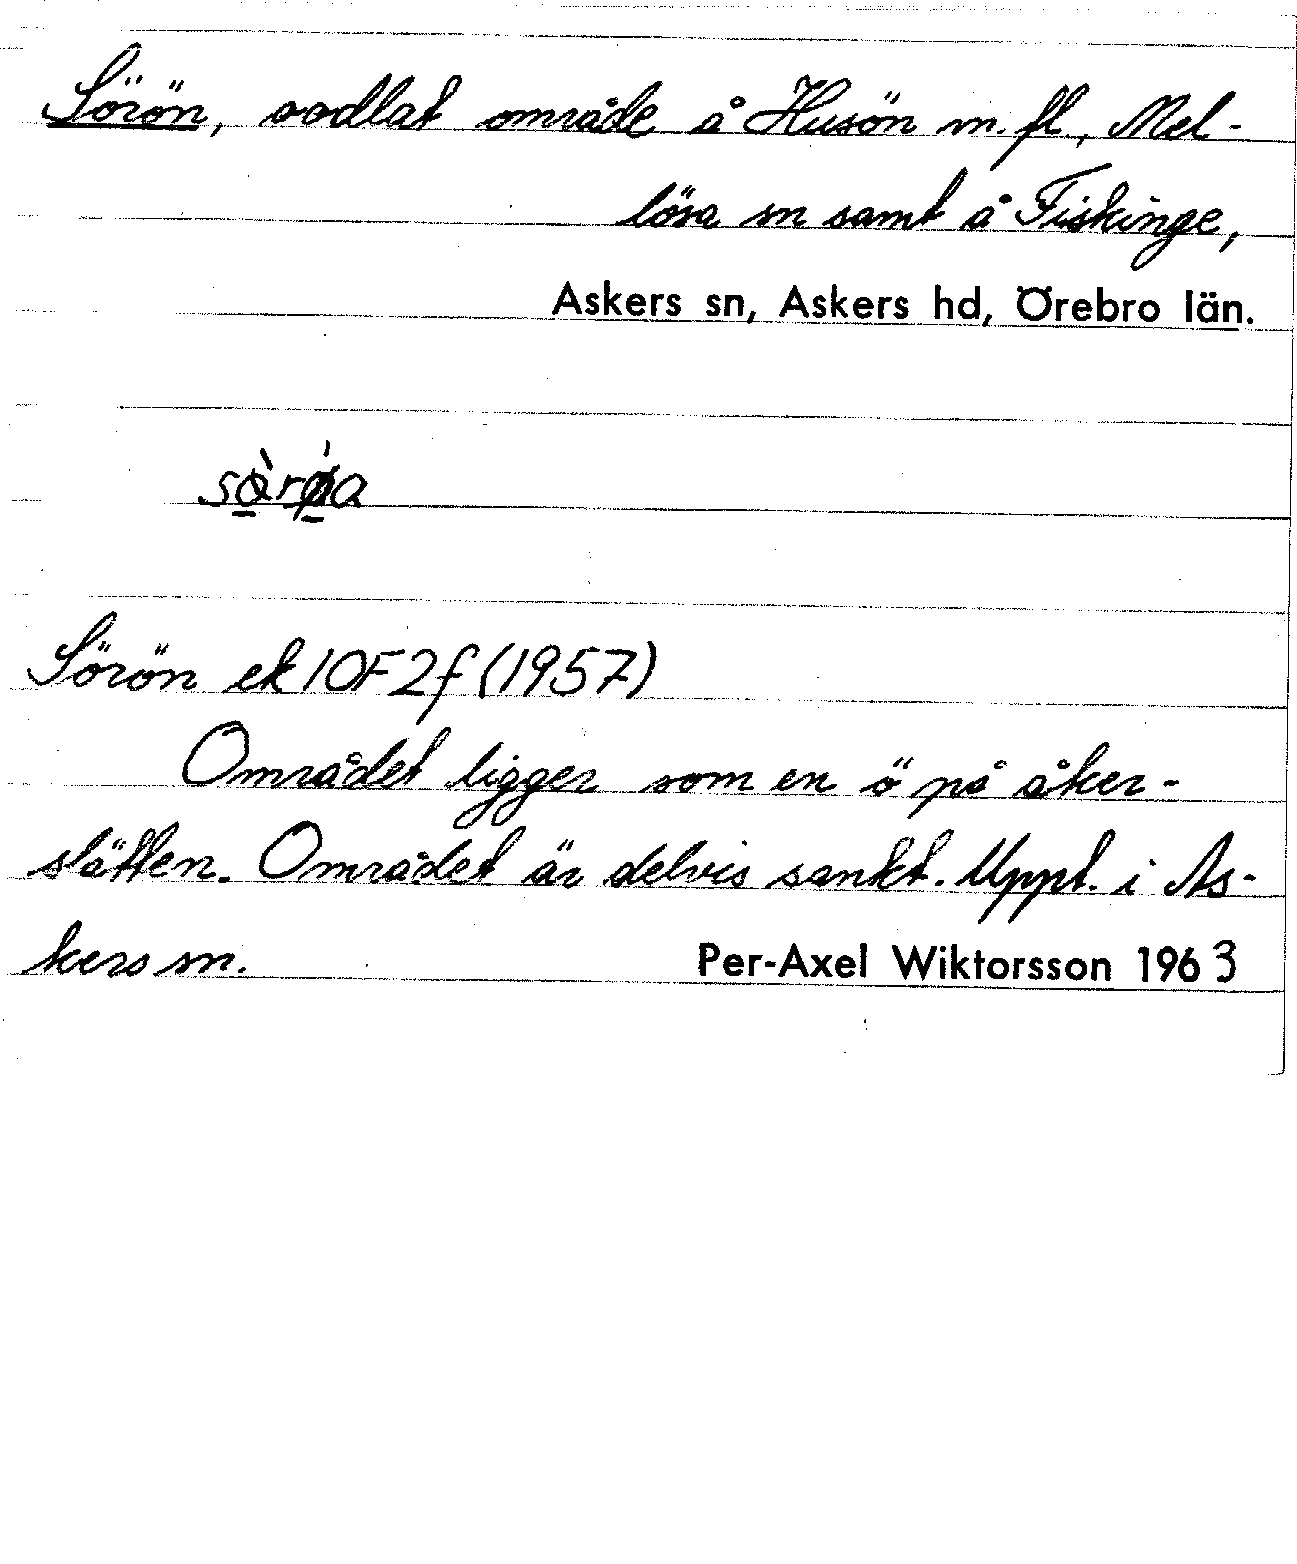 Sörön, oodlat område å Husön m. fl., Mel-
lösa sn samt å Fiskinge,
Askers sn, Askers hd, Örebro län.
Sörön ek 10F2f (1957)
Området ligger som en ö på åker-
slätten. Området är delvis sankt. Uppt. i As-
kers sn.
Per-Axel Wiktorsson 1963